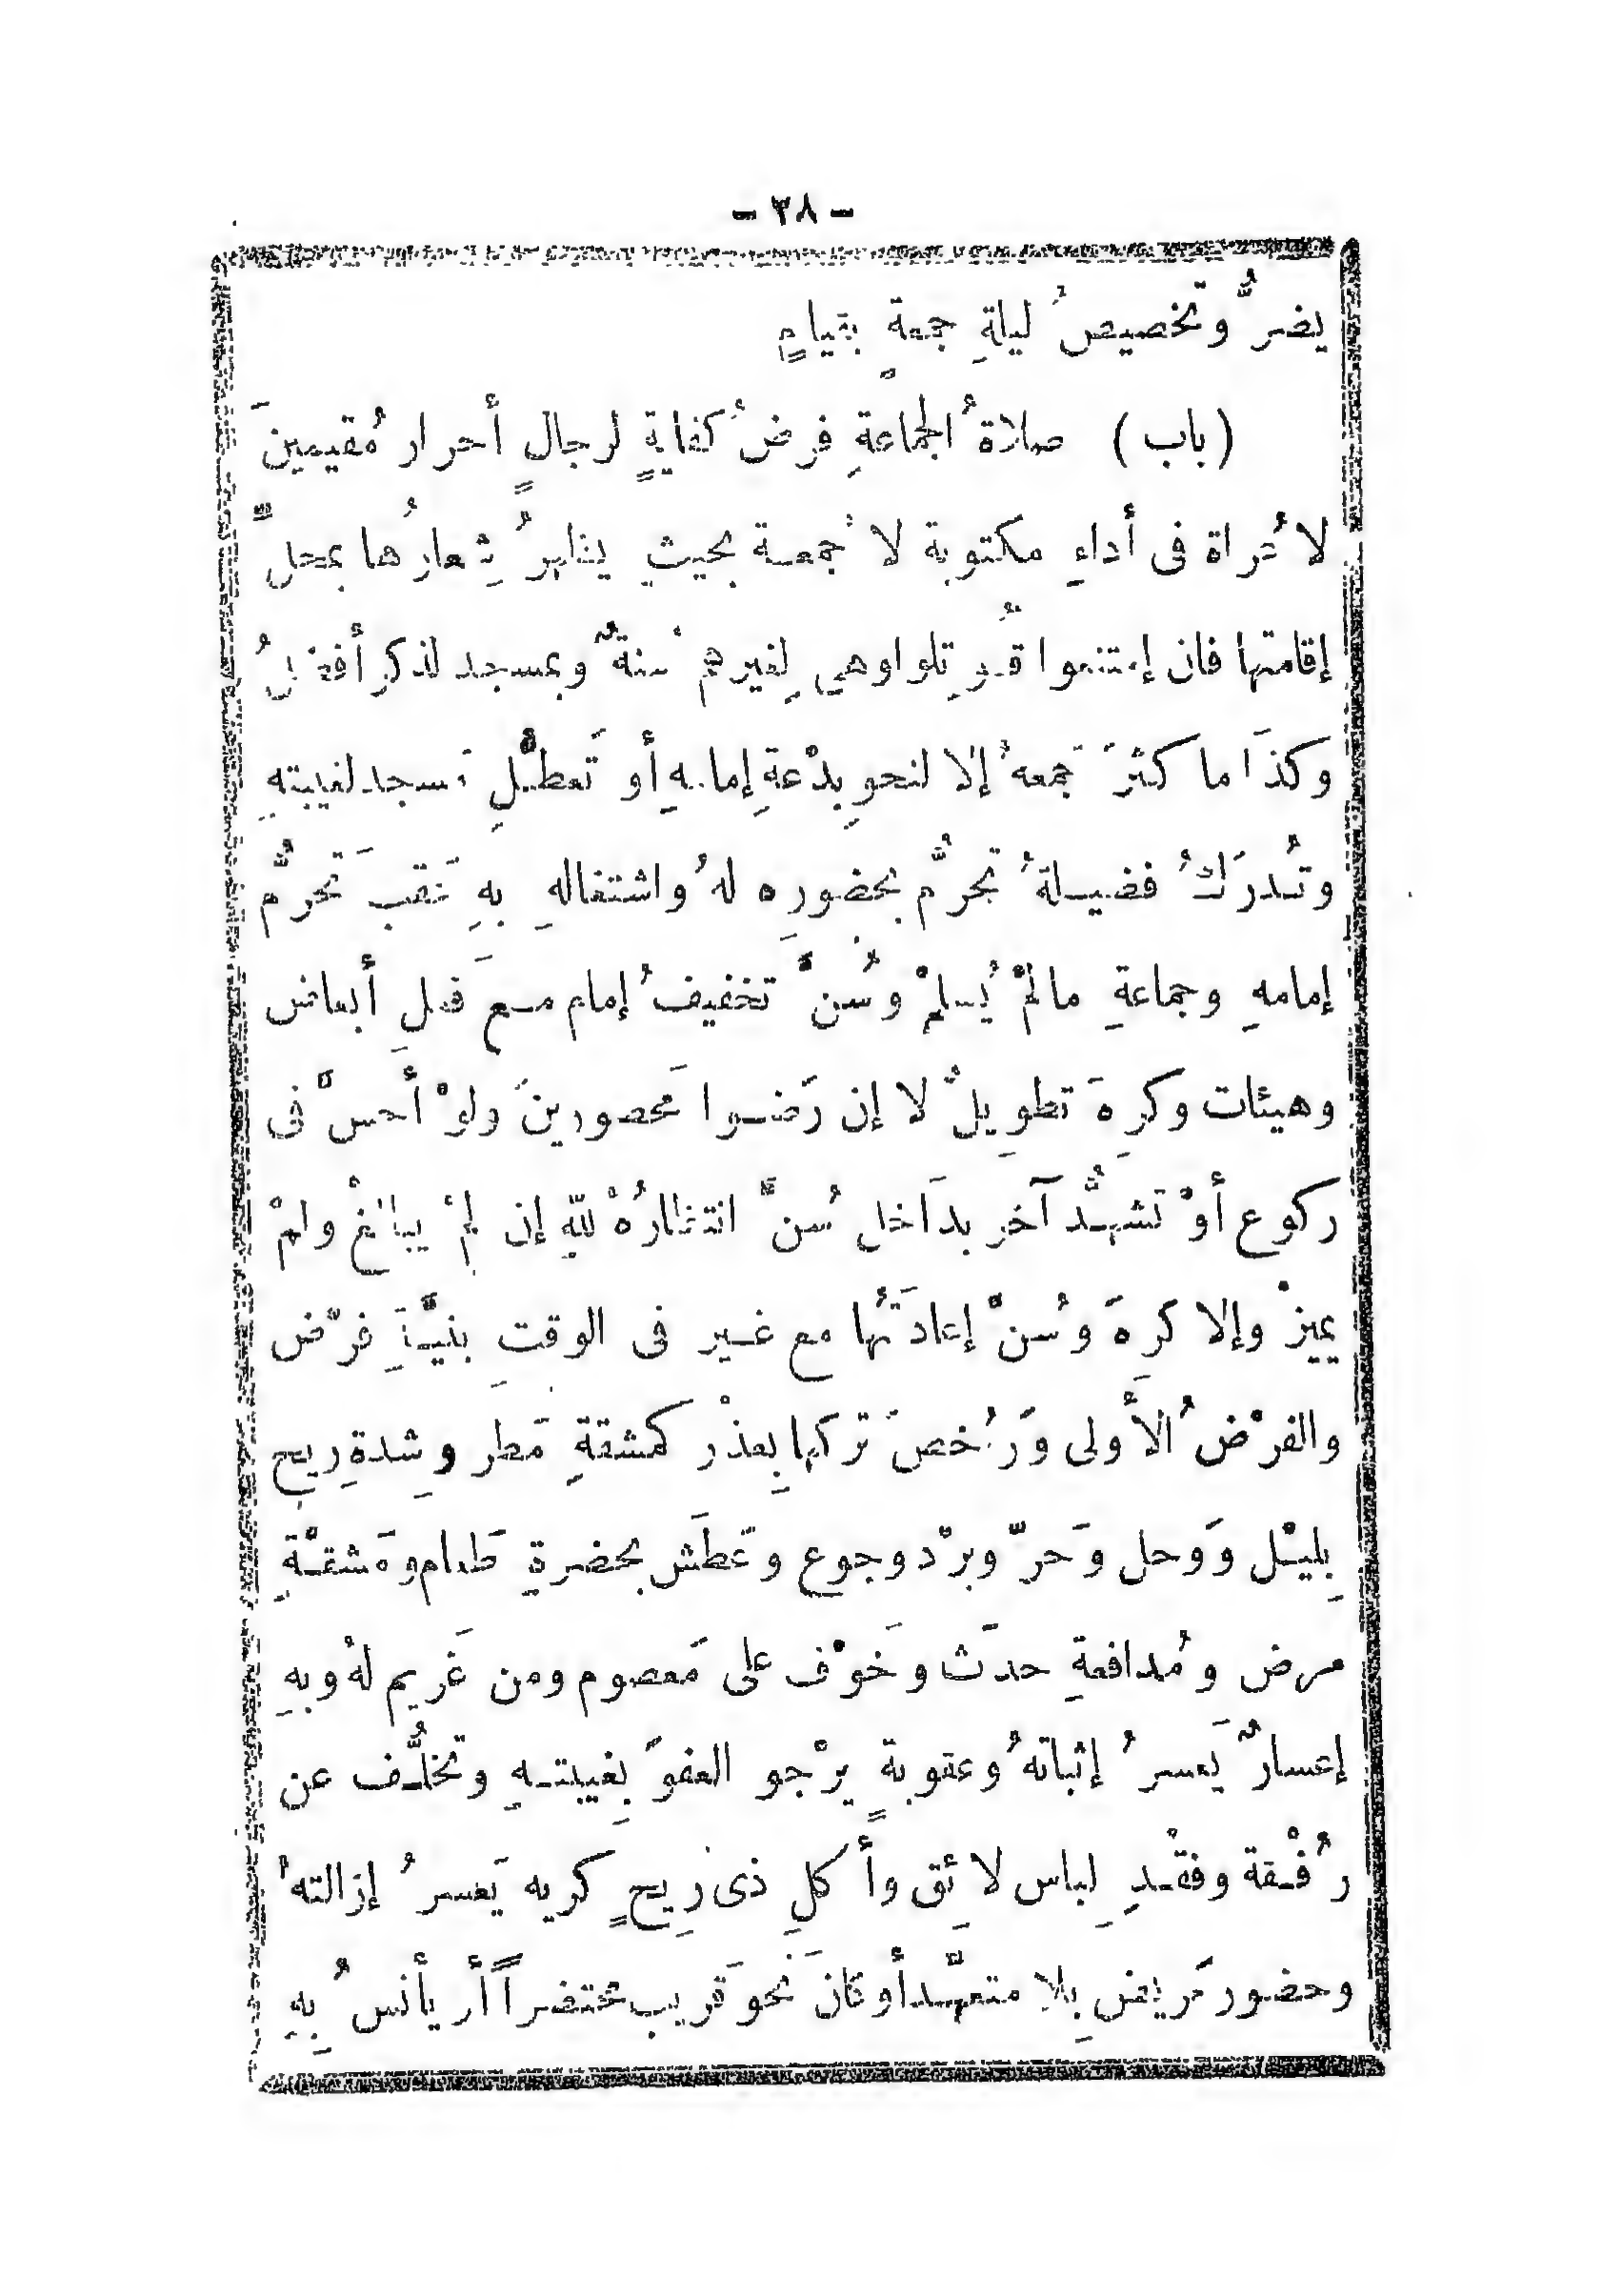 - ٣٨ -
يضرُّ وتخصيصُ ليلةِ جمعةٍ بقيامٍ
(باب) صلاةُ الجماعةِ فرضُ كفايةٍ لرجالٍ أحرار مُقيمينَ
لا عُراة فى أداءِ مكتوبة لا جُمعة بحيثِ يظهرُ شِعارُها بمحلِّ
إقامتها فان إمتنعوا قُوتِلوا وهىِ لِغيرهم سُنةٌ وبمسجد لذكرِ أفضلُ
وكذَا ما كثرَ جَمعهُ إلا لنحوِ بدْعةِ إمامهِ أو تَعطْلِ مَسجد لغيبتهِ
وتُدرَكُ فضيلةُ تحرُّم بحضورِه لهُ واشتغالهِ بهِ عَقبَ تَحرُّم
إمامهِ وجماعةِ مالمْ يُسلمْ وسُنَّ تخفيفُ إمام مع فعلِ أبعاض
وهيئات وكرِهَ تطويلٌ لا إن رَضوا مَحصورينَ ولوْ أحسَّ فى
ركوع أوْ تَشهُّد آخر بدَاخل سُنَّ انتظارُهْ للهِ إن لمْ يبالغْ ولمْ
يميزْ وإلا كرِهَ وسُنَّ إعادَتُها مع غير فى الوقتِ بنيَّةِ فرْض
والفرْضُ الأُولى ورُخصَ تَركها بِعذْر كمشقةِ مَطر وشِدةِ ريح
بِليْل ووَحل وحَرّ وبرْد وجوع وعَطَش بحضرةِ طعام ومَشقَّةِ
مرض ومُدافعةِ حدَث وخَوْف على مَعصوم ومن غَريم لهُ وبهِ
إعسارٌ يَعسرُ إثباتهُ وعقوبةٍ يرْجو العفوَ بِغيبتهِ وتخلُّف عن
رُفْقة وفقْدِ لِباس لائِق وأكلِ ذى رِيحٍ كريه يَعسرُ إزالتهُ
وحضور مَريض بِلا متعهِّد أو كانَ نَحوَ قَريب محتضراً أو يأنسُ بِهِ